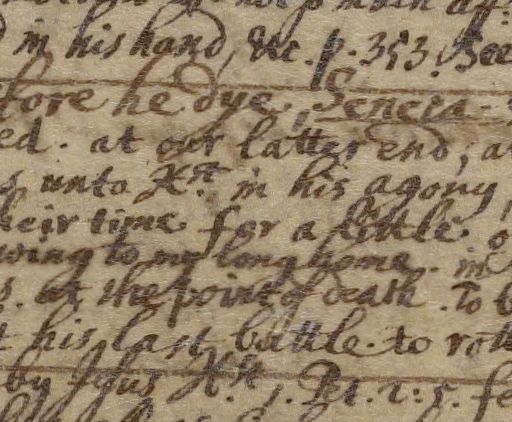 in his hand, &c. p. 353. See
fore he dye. Seneca.
ed. at our latter end; a
s unto Xst in his agony,
heir time for a little.
wing to my long home. in
s. at the point of death. To b
t his last battle. to rott
by Jesus Xst, Pet. 2: 5. fe